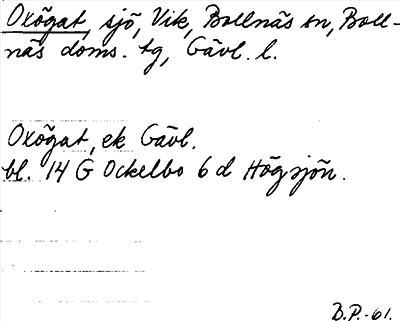 Oxögat, sjö, Vik, Bollnäs sn, Boll-
näs doms. tg, Gävl. l.
Oxögat, ek Gävl.
bl. 14 G Ockelbo 6 d Högsjön.
B.P.-61.